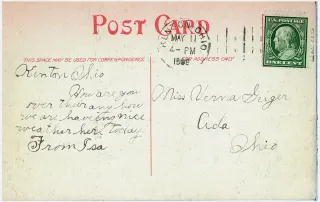 POST CARD
KENTON, OHIO
MAY 11
4-PM
U.S. POSTAGE
ONE CENT
THIS SPACE MAY BE USED FOR CORRESPONDENCE
FOR ADDRESS ONLY
Kenton Ohio
How are you
over there any how
we are having nice
weather here today.
From Isa
Miss Verna Geiger
Ada
Ohio